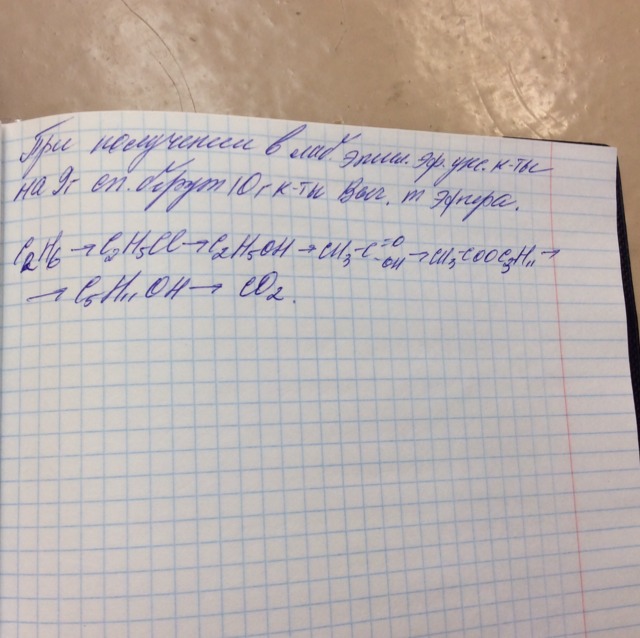 При получении в лаб. этил. эф. укс. к-ты
на 9г сп. берут 10 г к-ты Выч. m эфира.
C₂H₆ → C₂H₅Cl → C₂H₅OH → CH₃-C=O-OH → CH₃COOC₅H₁₁ →
→ C₅H₁₁OH → CO₂.